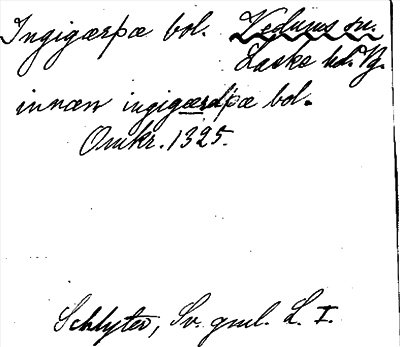 Ingigærþæ bol. Vedums sn.
Laske hd. Vg.
innan ingigærdþæ bol.
Omkr. 1325.
Schlyter, Sv. gml. L. I.